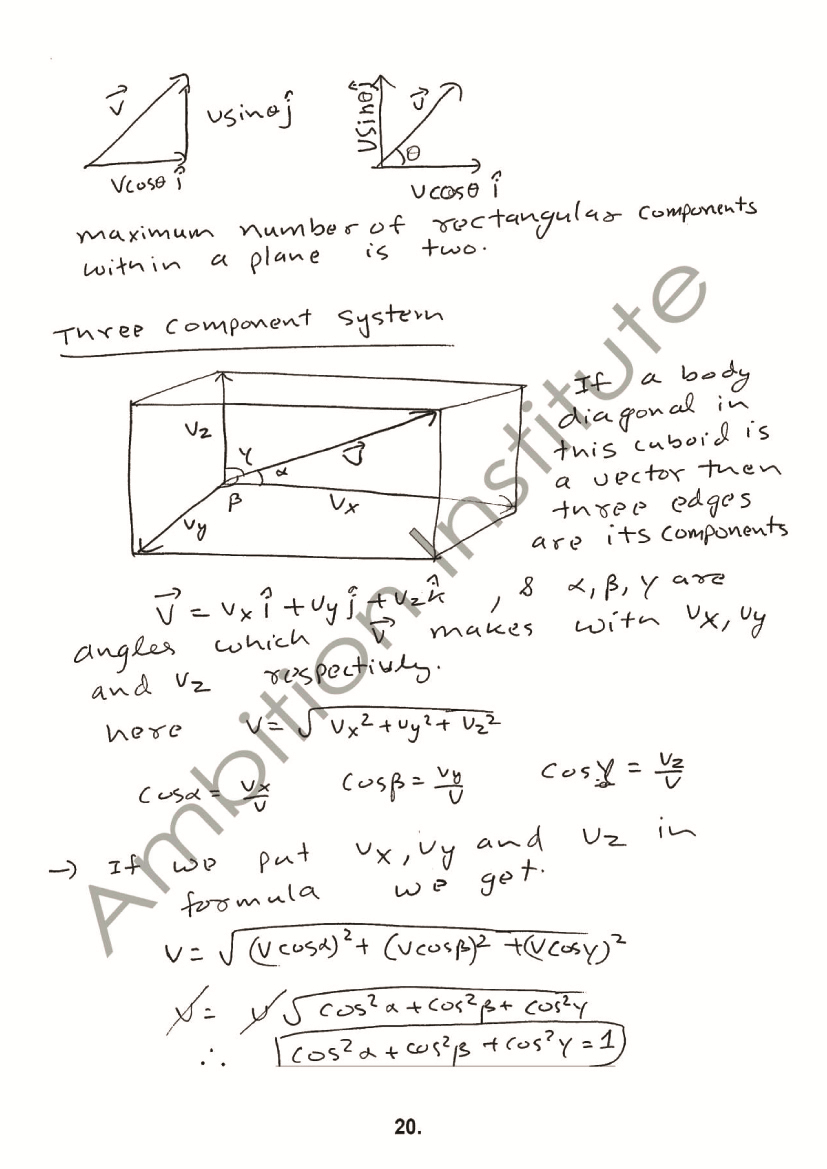 V⃗
vsinθ ĵ
vcosθ î
vsinθ ĵ
v⃗
θ
vcosθ î
maximum number of rectangular components
within a plane is two.
Three component system
Vz
γ
α
v⃗
β
Vx
Vy
If a body
diagonal in
this cuboid is
a vector then
three edges
are its components
V⃗ = Vx î + Vy ĵ + Vz k̂ , & α, β, γ are
angles which V⃗ makes with Vx, Vy
and Vz respectivly.
here V = √(Vx² + Vy² + Vz²)
Cosα = Vx/V Cosβ = Vy/V Cosγ = Vz/V
→ If we put Vx, Vy and Vz in
formula we get.
V = √((Vcosα)² + (Vcosβ)² + (Vcosγ)²)
V = V√(cos²α + cos²β + cos²γ)
∴ cos²α + cos²β + cos²γ = 1
Ambition Institute
20.